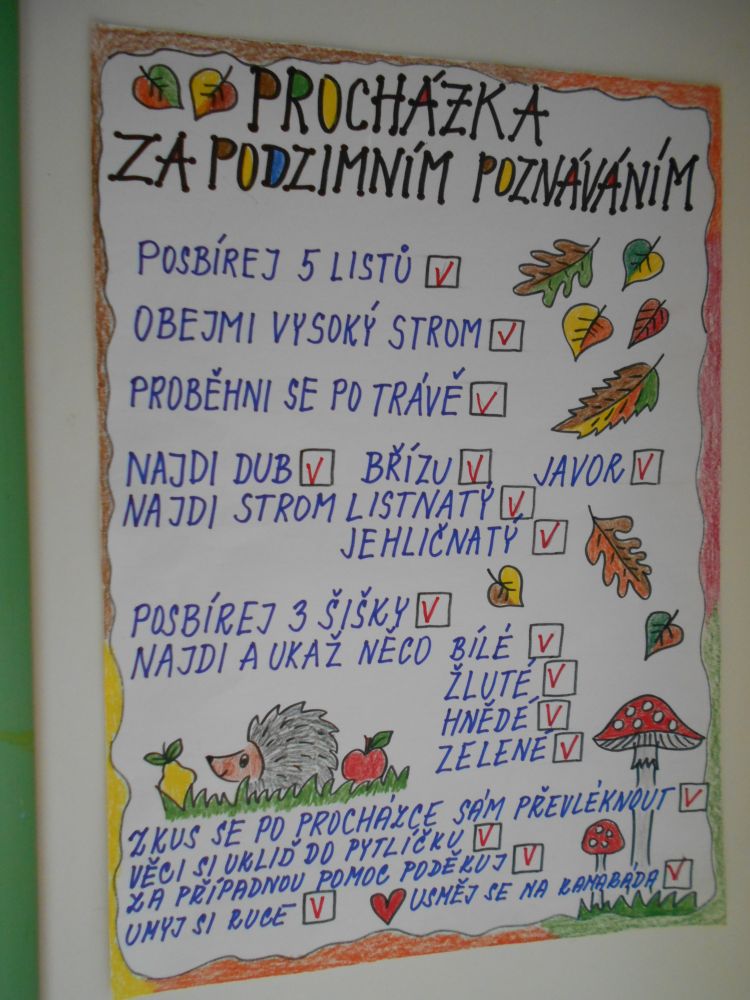 PROCHÁZKA
ZA PODZIMNÍM POZNÁVÁNÍM
POSBÍREJ 5 LISTŮ
OBEJMI VYSOKÝ STROM
PROBĚHNI SE PO TRÁVĚ
NAJDI DUB BŘÍZU JAVOR
NAJDI STROM LISTNATÝ
JEHLIČNATÝ
POSBÍREJ 3 ŠIŠKY
NAJDI A UKAŽ NĚCO BÍLÉ
ŽLUTÉ
HNĚDÉ
ZELENÉ
ZKUS SE PO PROCHÁZCE SÁM PŘEVLÉKNOUT
VĚCI SI UKLIĎ DO PYTLÍČKU
ZA PŘÍPADNOU POMOC PODĚKUJ
UMYJ SI RUCE
USMĚJ SE NA KAMARÁDA